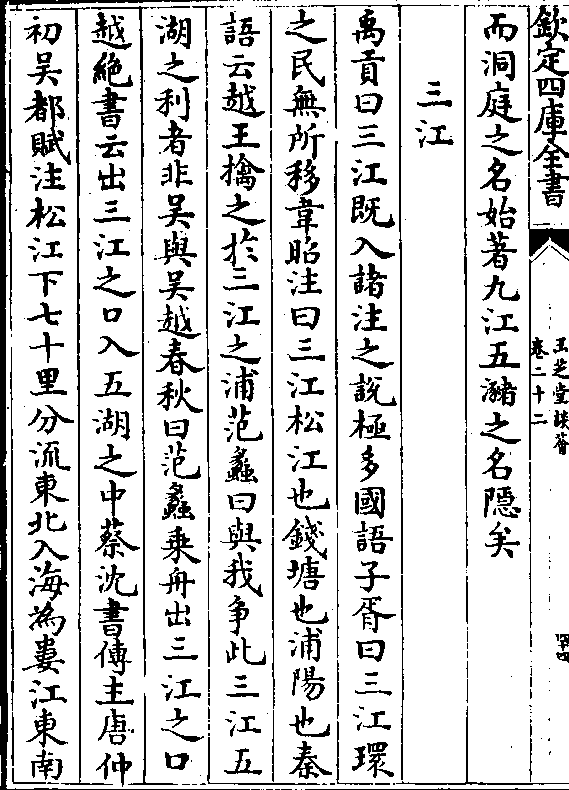 欽定四庫全書
玉芝堂談薈
卷二十二
而洞庭之名始著九江五瀦之名隱矣
三江
禹貢曰三江既入諸注之說極多國語子胥曰三江環
之民無所移韋昭注曰三江松江也錢塘也浦陽也秦
語云越王擒之於三江之浦范蠡曰與我爭此三江五
湖之利者非吳與吳越春秋曰范蠡乗舟出三江之口
越絶書云出三江之口入五湖之中蔡沈書傳主唐仲
初吳都賦注松江下七十里分流東北入海為婁江東南